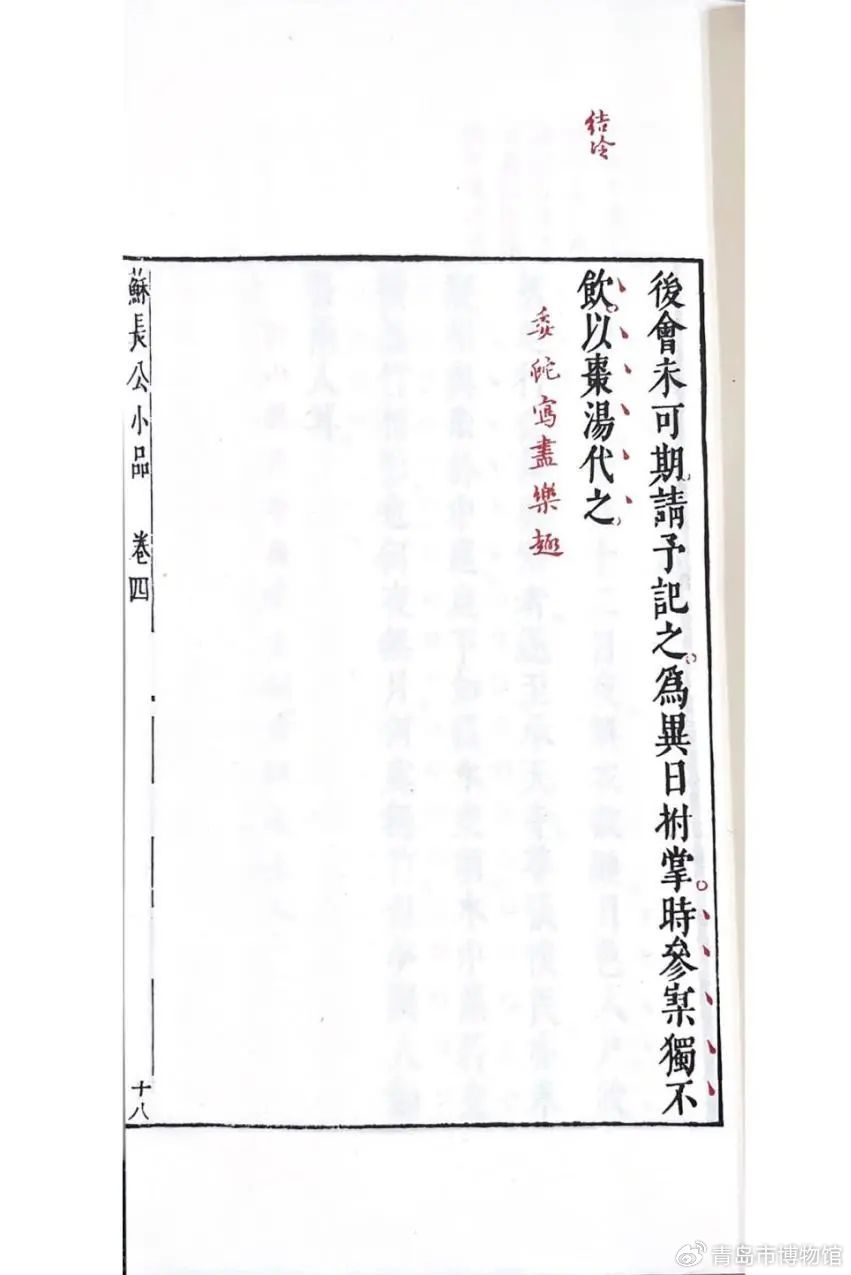 結冷
後會未可期請予記之爲異日拊掌時參寥獨不
飲以棗湯代之
委蛇寫盡樂趣
蘇長公小品 卷四
十八
青岛市博物馆